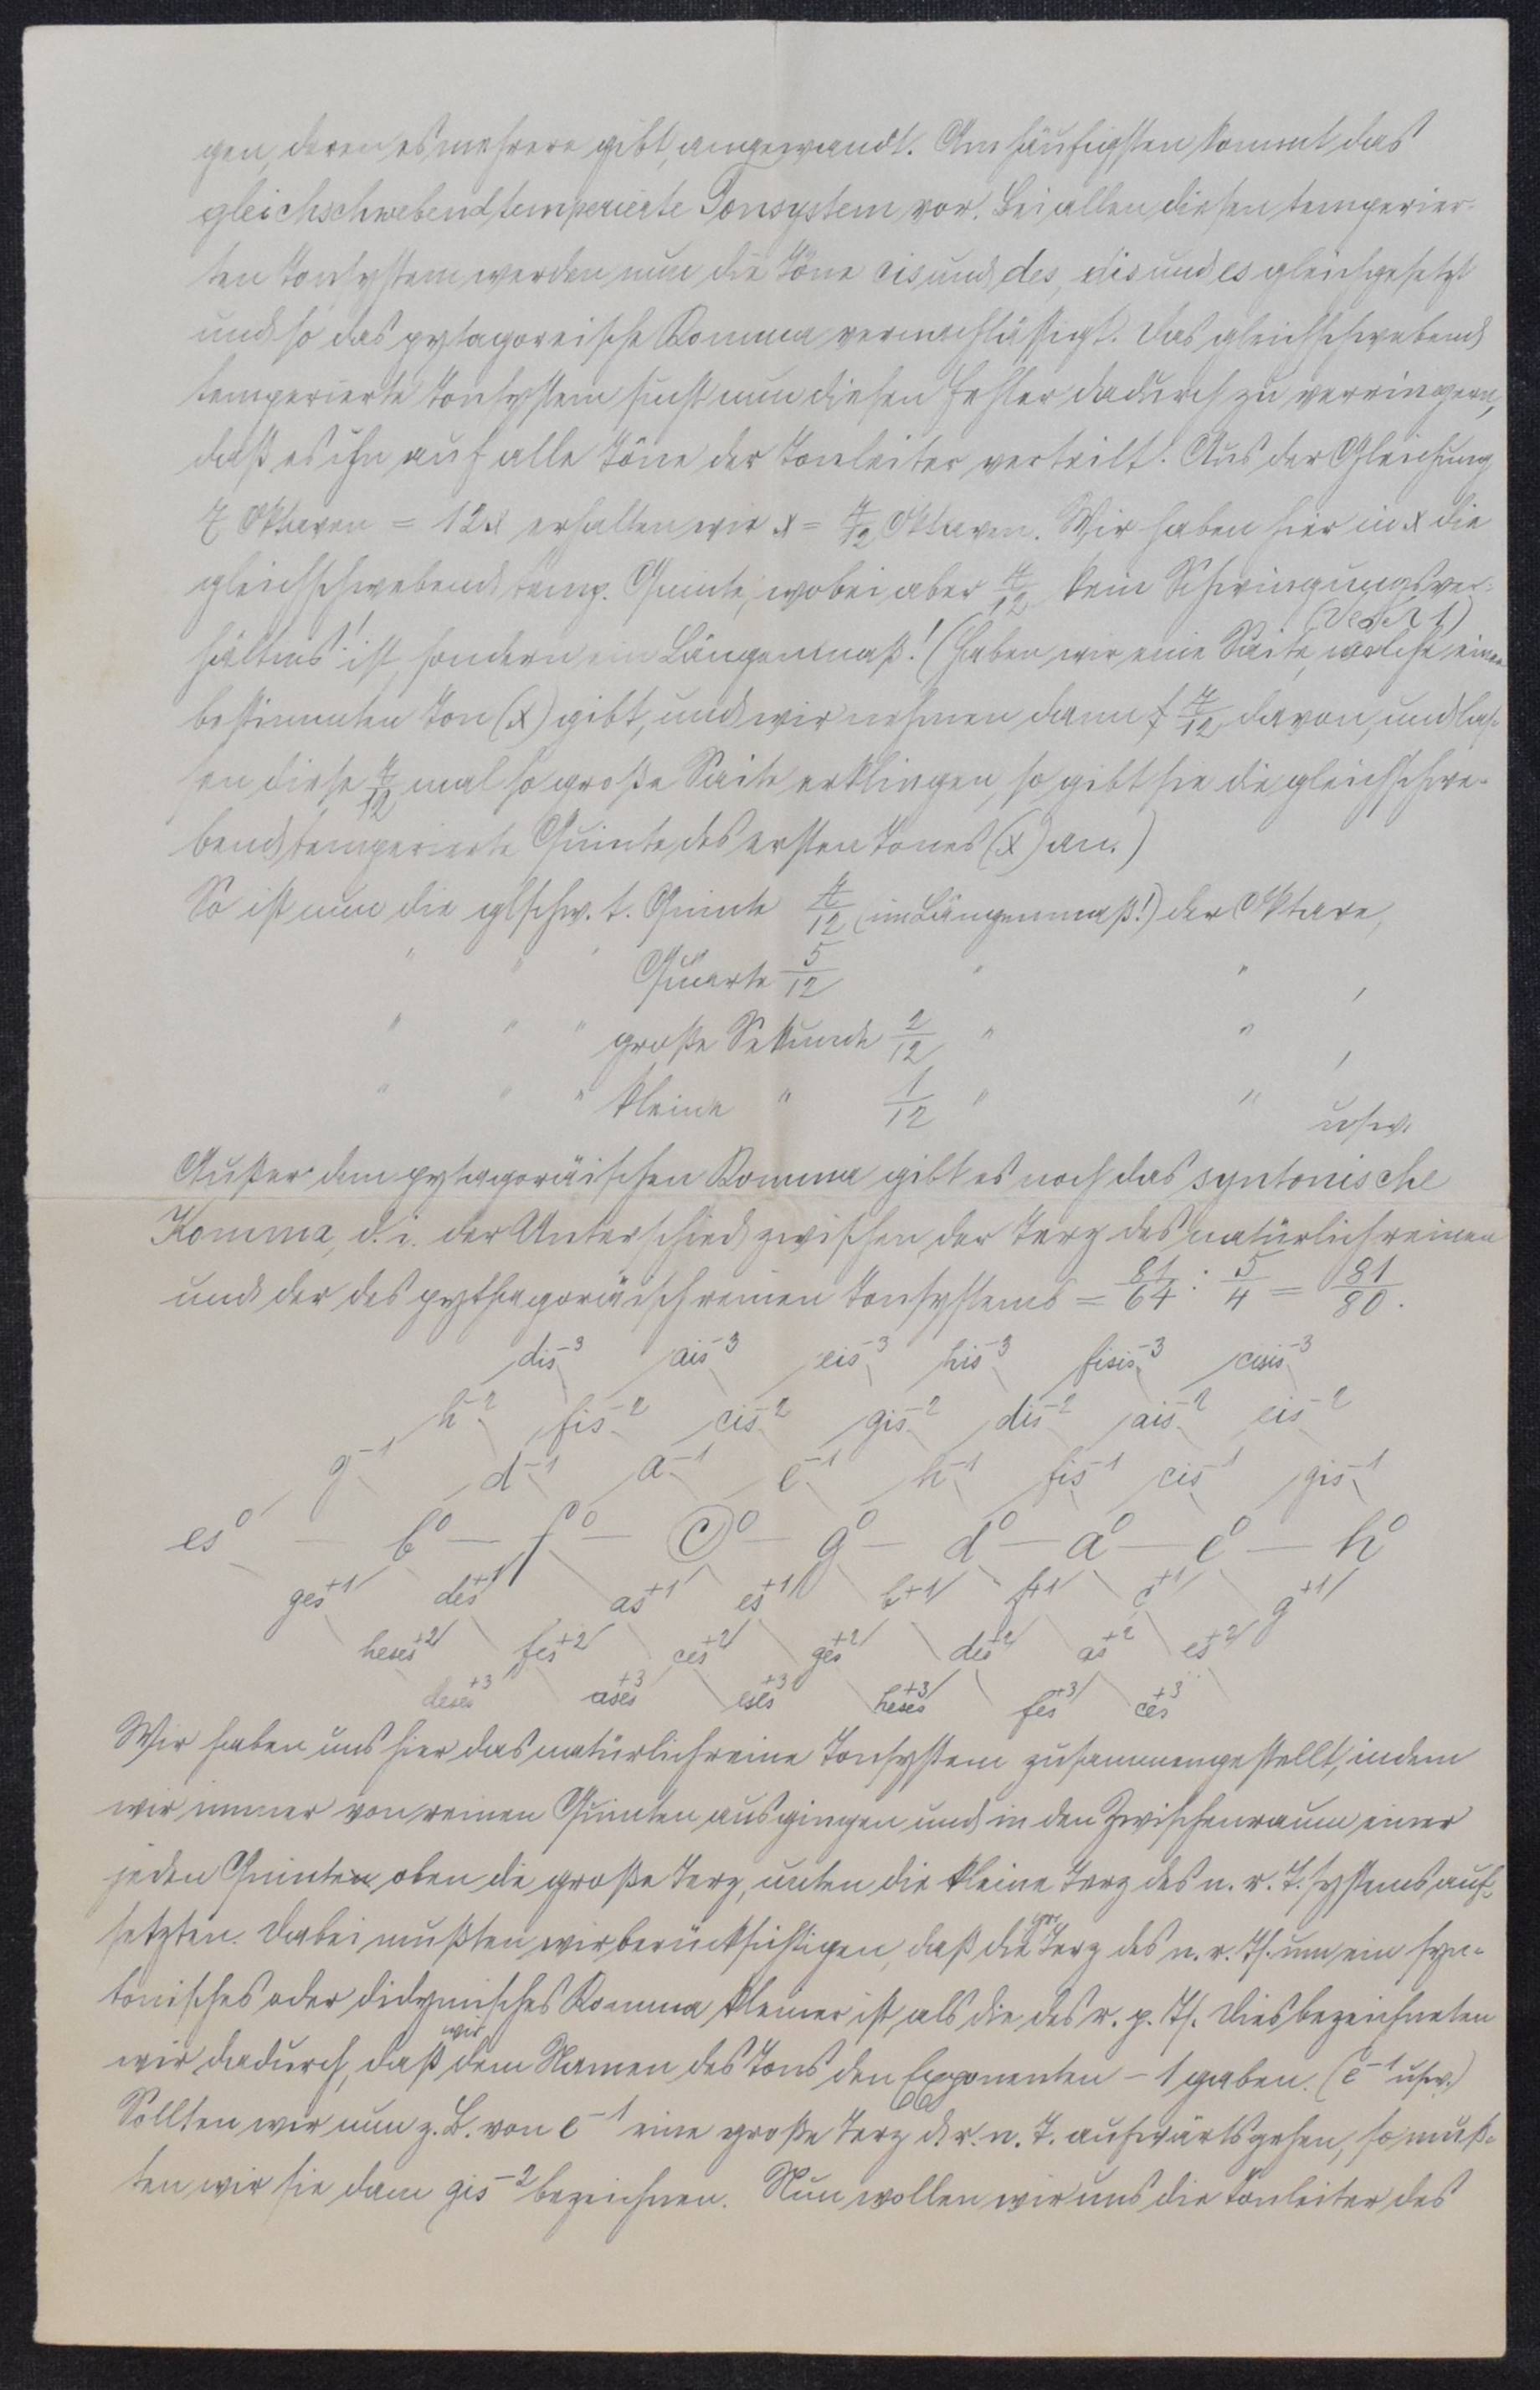 gen, deren es mehrere gibt, angewandt. Am häufigsten kommt das
gleichschwebend temperierte Tonsystem vor. Bei allen diesen temperier-
ten Tonsystem werden nun die Töne cis und des, dis und es gleichgesetzt
und so das pytagoreische Komma vernachlässigt. Das gleichschwebend
temperierte Tonsystem sucht nun diesen Fehler dadurch zu verringern,
daß es ihn auf alle Töne der Tonleiter verteilt. Aus der Gleichung
7 Oktaven = 12x erhalten wir x = 7/12 Oktaven. Wir haben hier in x die
gleichschwebend temp. Quinte, wobei aber 7/12 kein Schwingungsver-
hältnis! ist, sondern ein Längenmaß! (Haben wir eine Saite, welche einen
bestimmten Ton (x) gibt, und wir nehmen dann 7/12 davon, und las-
sen diese 7/12 mal so große Saite erklingen, so gibt sie die gleichschwe-
bend temperierte Quinte des ersten Tones (x) an.)
So ist nun die glschw. t. Quinte 7/12 (im Längenmaß!) der Oktave,
" " " Quarte 5/12 " " ,
" " " große Sekunde 2/12 " " ,
" " " kleine " 1/12 " " usw.
Außer dem pytagoräischen Komma gibt es noch das syntonische
Komma, d. i. der Unterschied zwischen der Terz des natürlich reinen
und der des pythagoräisch reinen Tonsystems = 81/64 : 5/4 = 81/80.
dis⁻³ ais⁻³ eis⁻³ his⁻³ fisis⁻³ cisis⁻³
h⁻² fis⁻² cis⁻² gis⁻² dis⁻² ais⁻² eis⁻²
g⁻¹ d⁻¹ a⁻¹ e⁻¹ h⁻¹ fis⁻¹ cis⁻¹ gis⁻¹
es⁰ — b⁰ — f⁰ — c⁰ — g⁰ — d⁰ — a⁰ — e⁰ — h⁰
ges⁺¹ des⁺¹ as⁺¹ es⁺¹ b⁺¹ f⁺¹ c⁺¹ g⁺¹
heses⁺² fes⁺² ces⁺² ges⁺² des⁺² as⁺² es⁺²
deses⁺³ ases⁺³ eses⁺³ heses⁺³ fes⁺³ ces⁺³
Wir haben uns hier das natürlich reine Tonsystem zusammengestellt, indem
wir immer von reinen Quinten ausgingen und in den Zwischenraum einer
jeden Quinten oben die große Terz, unten die kleine Terz des n. r. T. systems auf-
setzten. Dabei mußten wir berücksichtigen, daß die gr. Terz des n. r. Ts. um ein syn-
tonisches oder didymisches Komma kleiner ist, als die des r. p. Ts. Dies bezeichneten
wir dadurch, daß wir dem Namen des Tons den Exponenten – 1 gaben. (e⁻¹ usw.)
Sollten wir nun z. B. von e⁻¹ eine große Terz d. r. n. T. aufwärts gehen, so muß-
ten wir sie dann gis⁻² bezeichnen. Nun wollen wir uns die Tonleiter des